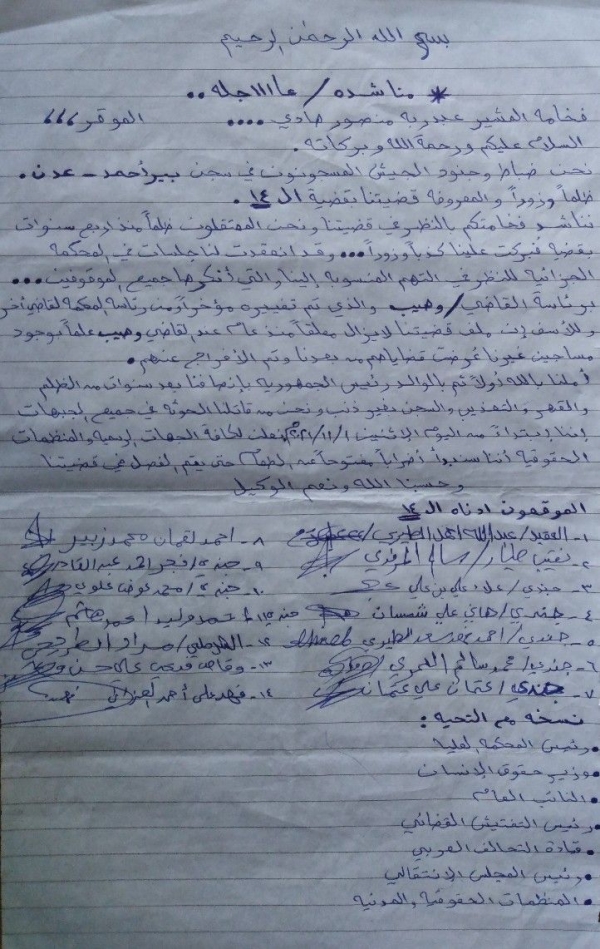 بسم الله الرحمن الرحيم
* مناشده / عاااجله ..
فخامة المشير عبدربه منصور هادي .... الموقر ،،،
السلام عليكم ورحمة الله وبركاته .
نحن ضباط وجنود الجيش المسجونون في سجن بيرأحمد - عدن .
ظلماً وزوراً والمعروفه قضيتنا بقضية الـ ١٤ .
نناشد فخامتكم بالنظر في قضيتنا ونحن المعتقلون ظلماً منذ اربع سنوات
بقضية فبركت علينا كذباً وزوراً ... وقد انعقدت لنا جلسات في المحكمة
الجزائية للنظر في التهم المنسوبه إلينا والتي أنكرها جميع الموقوفين ...
برئاسة القاضي / وهيب والذي تم تغييره مؤخراً من رئاسة المحكمة لقاضي أخر
وللأسف إن ملف قضيتنا لايزال معلقاً منذ عام عند القاضي وهيب علماً بوجود
مساجين غيرنا عرضت قضاياهم من بعدنا وتم الأفراج عنهم .
أملنا بالله أولاً ثم بالوالد رئيس الجمهوريه بإنصافنا بعد سنوات من الظلم
والقهر والتعذيب والسجن بغير ذنب ونحن من قاتلنا الحوثة في جميع الجبهات
إننا إبتداءً من اليوم الاثنين ٢٠٢١/١١/١م نعلن لكافة الجهات الرسمية والمنظمات
الحقوقية أننا سنبدأ أضراباً مفتوحاً عن الطعام حتى يتم الفصل في قضيتنا
وحسبنا الله ونعم الوكيل
الموقعون ادناه الـ ١٤
١- العقيد / عبدالله احمد
٨- احمد لقمان محمد زبير
٢- نقيب
٩- جندي /
٣- جندي / علاء علي بن علي
١٠- جندي / محمد عوض علوي
٤- جندي / هاني علي شمسان
١١- جندي / محمد وليد احمد هاشم
٥- جندي / احمد سعد
١٢- مراد
٦- جندي / محمد سالم العمري
١٣- وقاص فتحي علي حسن
٧- جندي / عثمان علي عثمان
١٤- فهد علي أحمد
نسخه مع التحيه :
• رئيس المحكمه العليا
• وزير حقوق الإنسان
• النائب العام
• رئيس التفتيش القضائي
• قيادة التحالف العربي
• رئيس المجلس الإنتقالي
• المنظمات الحقوقية والمدنيه